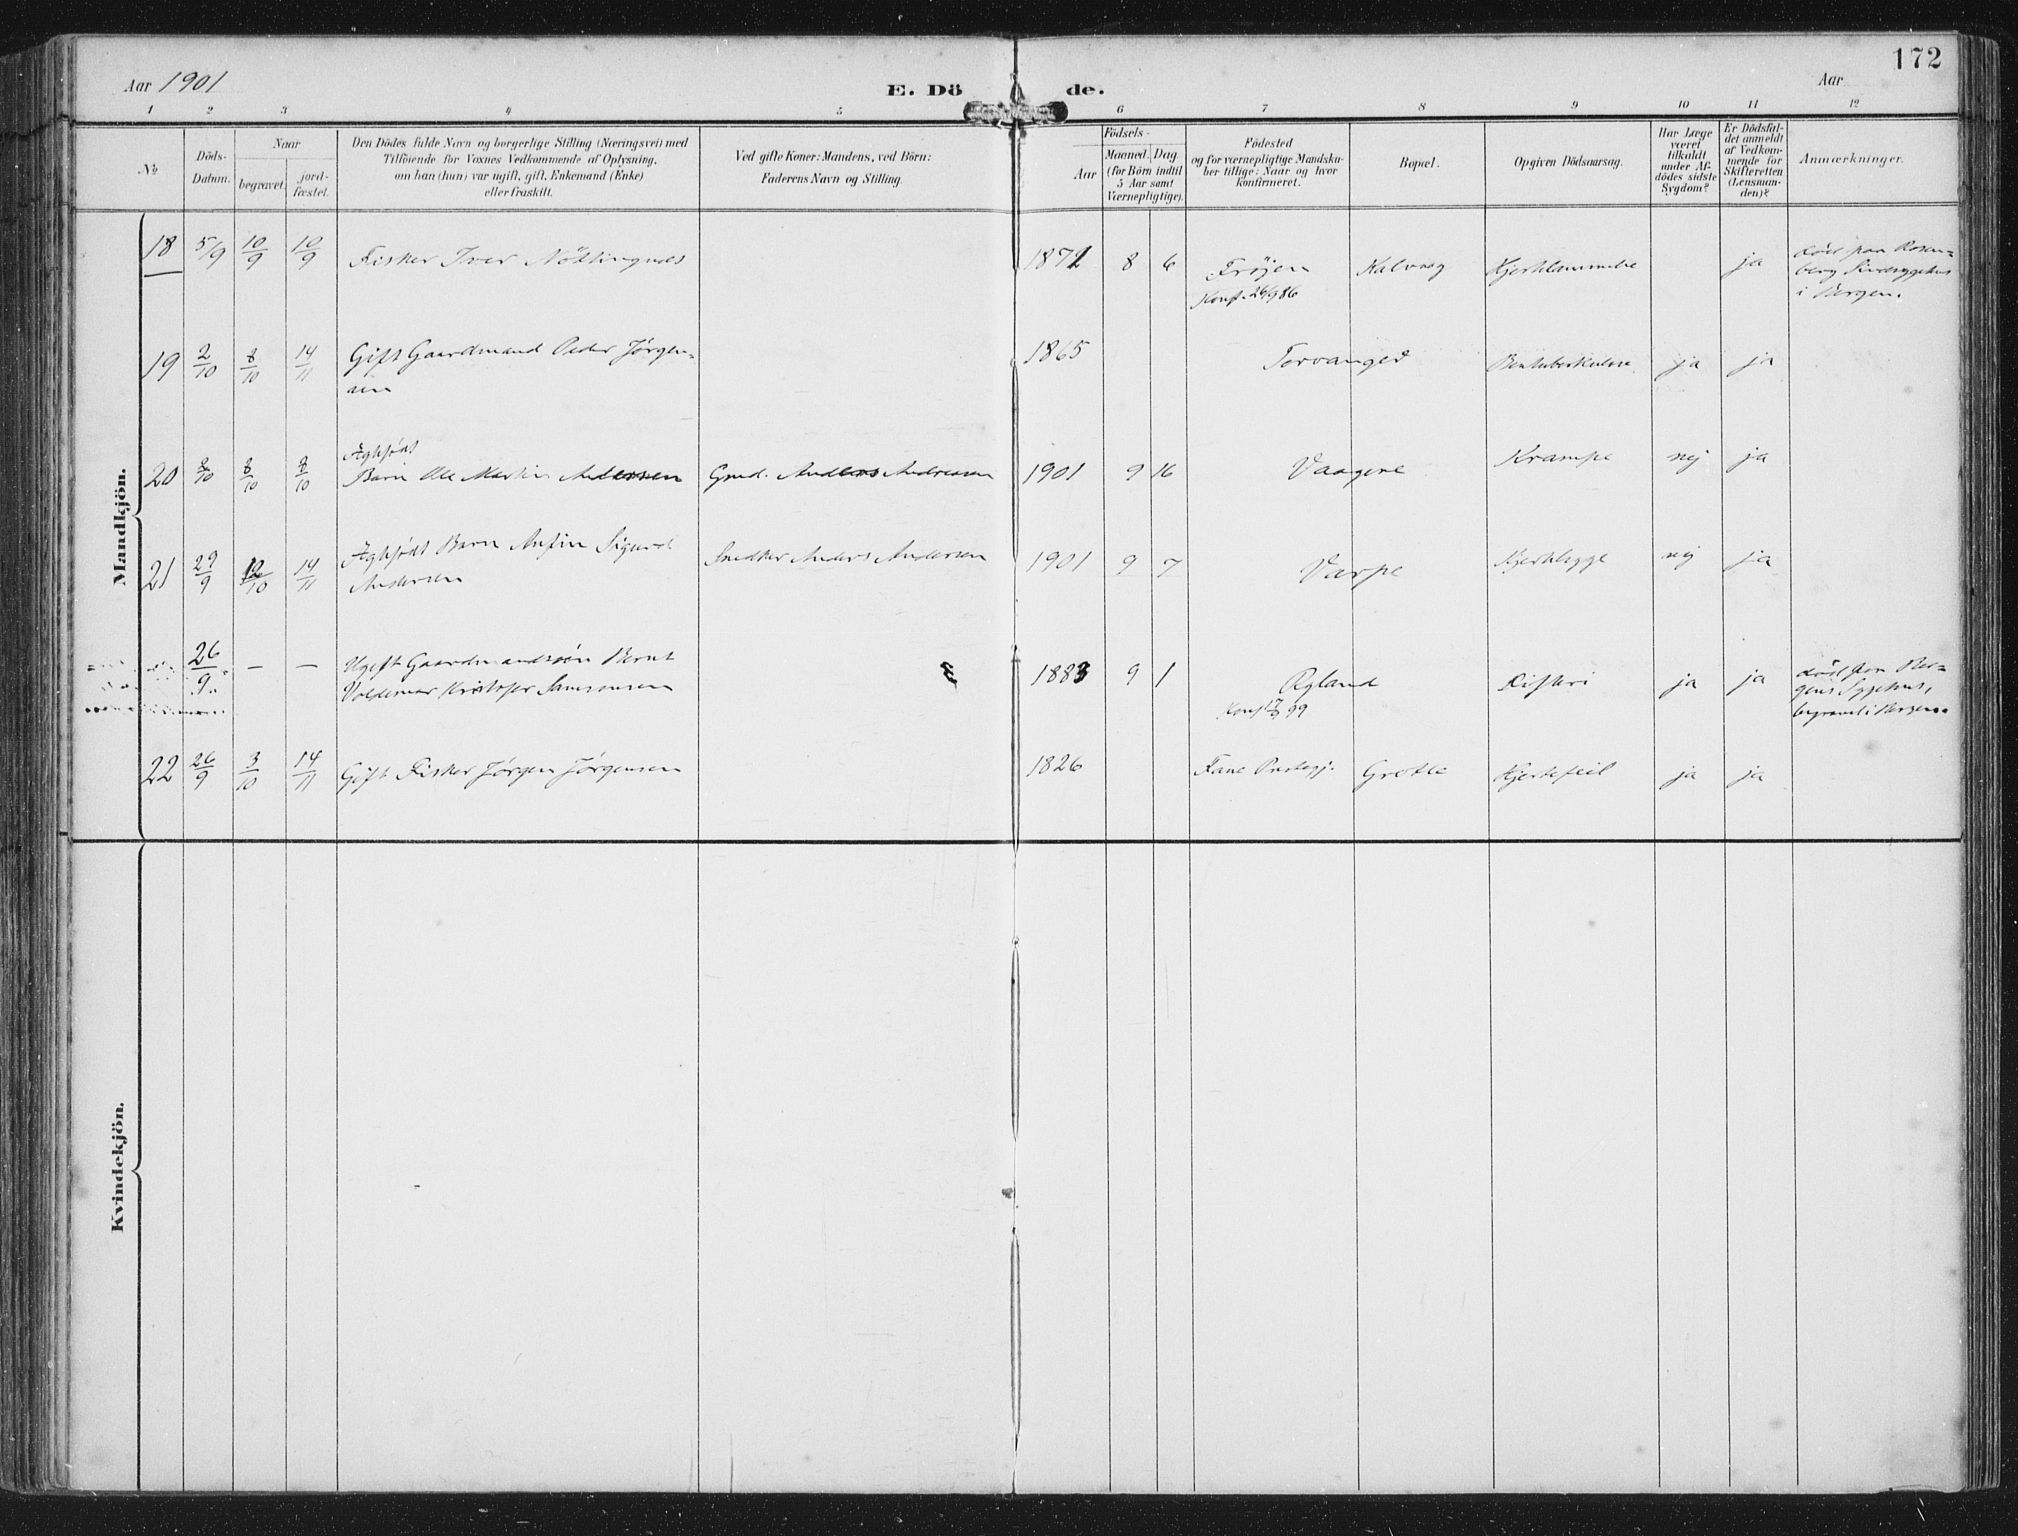 172
Aar 1901
E. Dö de.
Aar
1 2 3 4 5 6 7 8 9 10 11 12
№
Döds-Datum.
Naar
begravet.
jord-fæstet.
Den Dödes fulde Navn og borgerlige Stilling (Næringsvei) med
Tilföiende for Voxnes Vedkommende af Oplysning,
om han (hun) var ugift, gift, Enkemand (Enke)
eller fraskilt.
Ved gifte Koner: Mandens, ved Börn:
Faderens Navn og Stilling.
Födsels-
Aar
Maaned. Dag
(for Börn indtil
5 Aar samt
Værnepligtige).
Födested
og for værnepligtige Mandska-
ber tillige: Naar og hvor
konfirmeret.
Bopæl.
Opgiven Dödsaarsag.
Har Læge
været
tilkaldt
under Af-
dödes sidste
Sygdom?
Er Dödsfal-
det anmeldt
af Vedkom-
mende for
Skifteretten
(Lensman-
den)?
Anmærkninger.
Mandkjön.
18 5/9 10/9 10/9 Fisker Iver Nöttingnes 1872 8 6 Fröjen Kalvaag ja död paa Rosen-
Konf. 26/9 86 berg Sindssygehus
i Bergen.
19 2/10 8/10 14/11 Gift Gaardmand Peder Jörgen-
sen 1865 Torvanger ja ja
20 8/10 8/10 Ægtefödt
Barn Ole Martin Andersen Gmd. Anders Andreasen 1901 9 16 Vaagene Krampe nej ja
21 29/9 12/10 14/11 Ægtefödt Barn Anfin Sigurd Snedker Anders Andersen 1901 9 7 Varpe nej ja
Andersen
26/9 — — Ugift Gaardmandssön Bernt 1883 9 1 Rygland ja ja död paa Ber-
Valdemar Kristofer Samsonsen Konf 17/9 99 gens Sygehus,
begravet i Bergen.
22 26/9 3/10 14/11 Gift Fisker Jörgen Jörgensen 1826 Fane Prestegj. Grotle Hjertefeil ja ja
Kvindekjön.